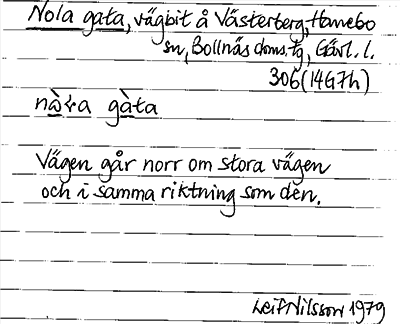 Nola gata, vägbit å Västerberg, Hanebo
sn, Bollnäs doms. tg, Gävl. l.
306 (14G7h)
gàta
Vägen går norr om stora vägen
och i samma riktning som den.
Leif Nilsson 1979